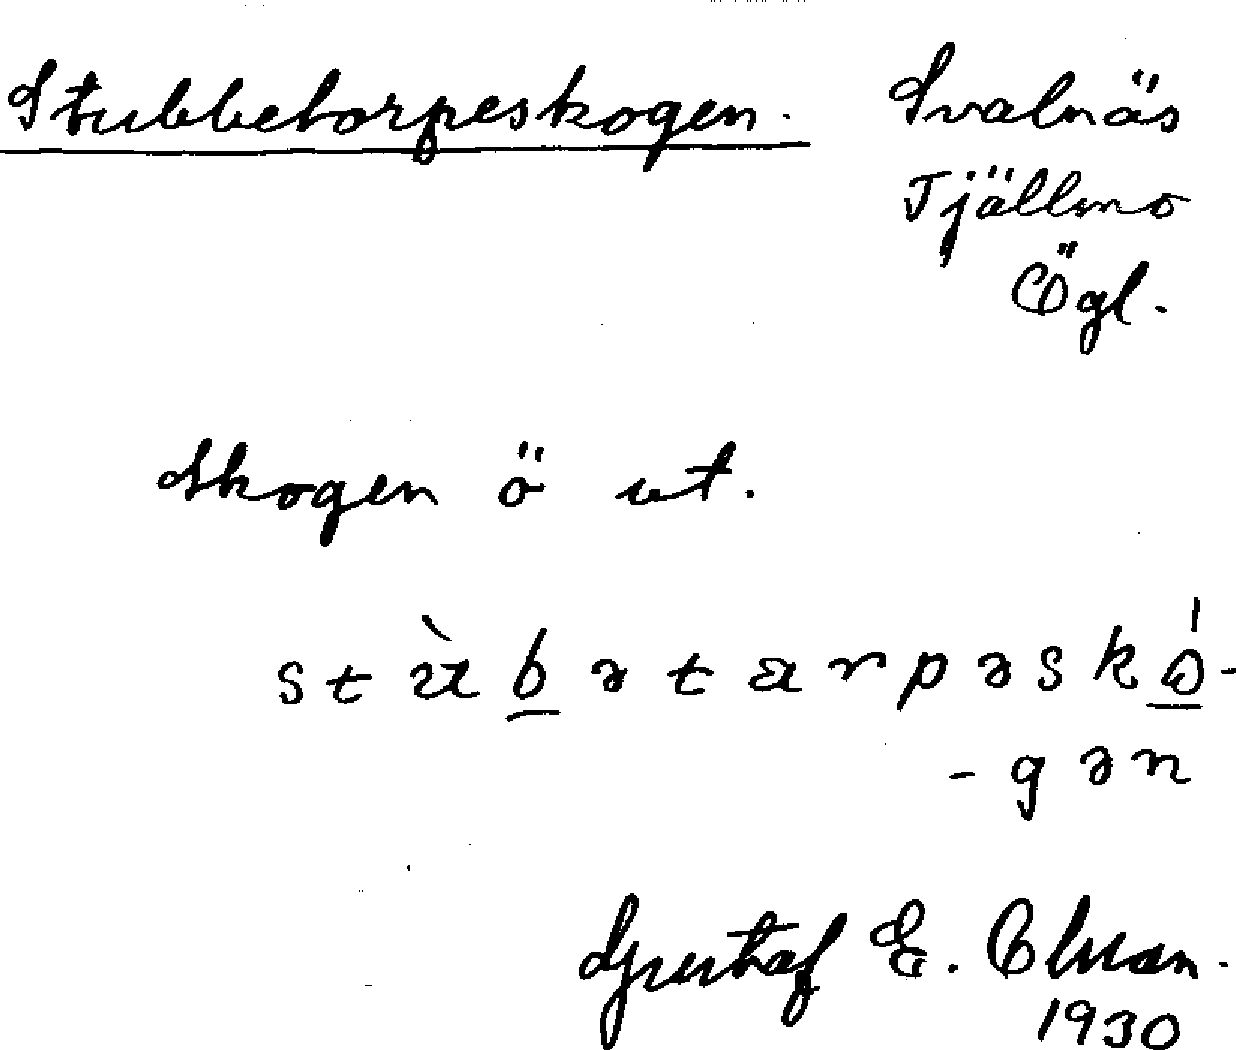 Stubbetorpeskogen. Svalnäs
Tjällmo
Ögl.
Skogen ö ut.
stùbətarpəskó-
-gən
Gustaf E.
1930